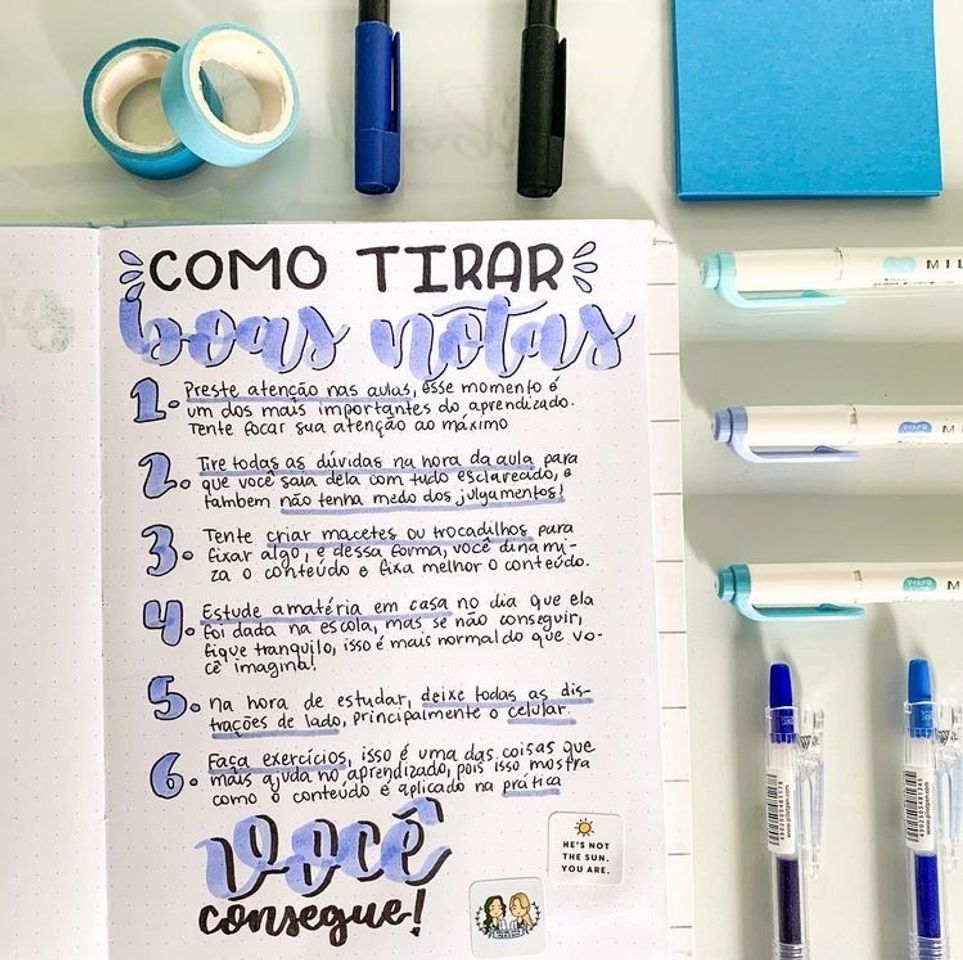 COMO TIRAR
boas notas
1. Preste atenção nas aulas, esse momento é
um dos mais importantes do aprendizado.
Tente focar sua atenção ao máximo
2. Tire todas as dúvidas na hora da aula para
que você saia dela com tudo esclarecido, e
tambem não tenha medo dos julgamentos!
3. Tente criar macetes ou trocadilhos para
fixar algo, e dessa forma, você dinami-
za o conteúdo e fixa melhor o conteúdo.
4. Estude a matéria em casa no dia que ela
foi dada na escola, mas se não conseguir,
fique tranquilo, isso é mais normal do que vo-
cê imagina!
5. na hora de estudar, deixe todas as dis-
trações de lado, principalmente o celular.
6. Faça exercícios, isso é uma das coisas que
mais ajuda no aprendizado, pois isso mostra
como o conteúdo é aplicado na prática
você
consegue!
HE'S NOT
THE SUN.
YOU ARE.
MIL
MI
M
www.pilotpen.com